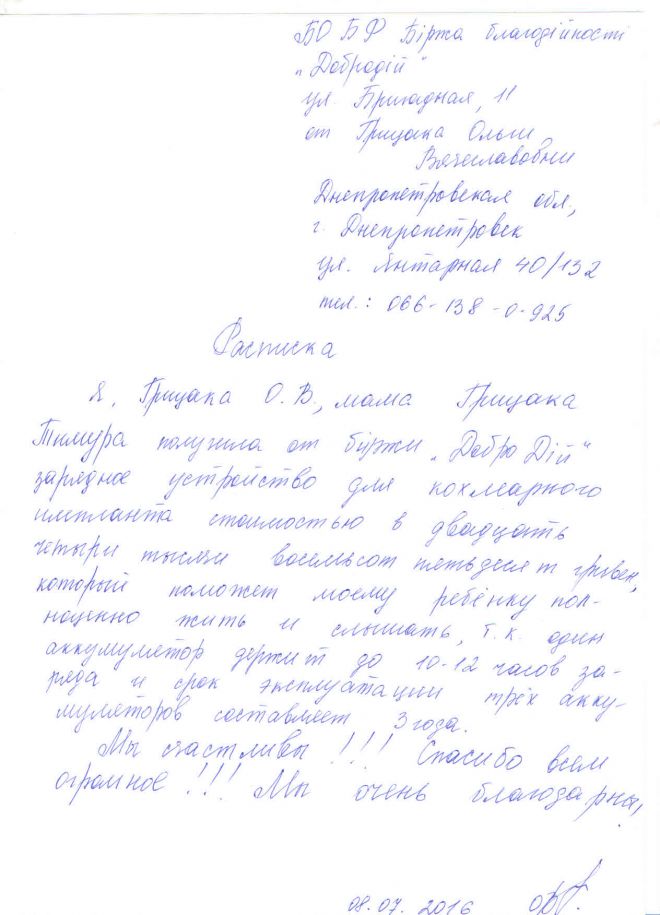 БО БФ Біржа благодійності
„Добродій"
ул. Бригадная, 11
от Грицака Ольги
Вячеславовны
Днепропетровская обл,
г. Днепропетровск
ул. Янтарная 40/132
тел.: 066-138-0-925
Расписка
Я, Грицака О.В., мама Грицака
Тимура получила от біржи „ДоброДій"
зарядное устройство для кохлеарного
импланта стоимостью в двадцать
четыри тысячи восемьсот петьдесят гривен,
который поможет моему ребёнку пол-
ноценно жить и слышать, т.к. один
аккумулетор держит до 10-12 часов за-
ряда и срок эксплуатации трёх акку-
муляторов составляет 3 года.
Мы счастливы!!! Спасибо всем
огромное!!! Мы очень благодарны,
08.07.2016